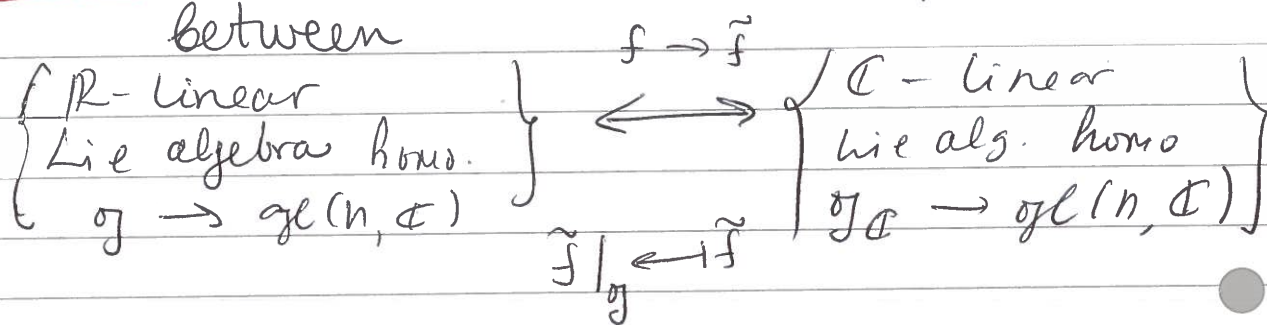 between
f → f̃
{ ℝ-linear Lie algebra homo. 𝔤 → gl(n, ℂ) } ⟷ { ℂ-linear Lie alg. homo 𝔤_ℂ → 𝔤l(n, ℂ) }
f̃|_𝔤 ⟻ f̃